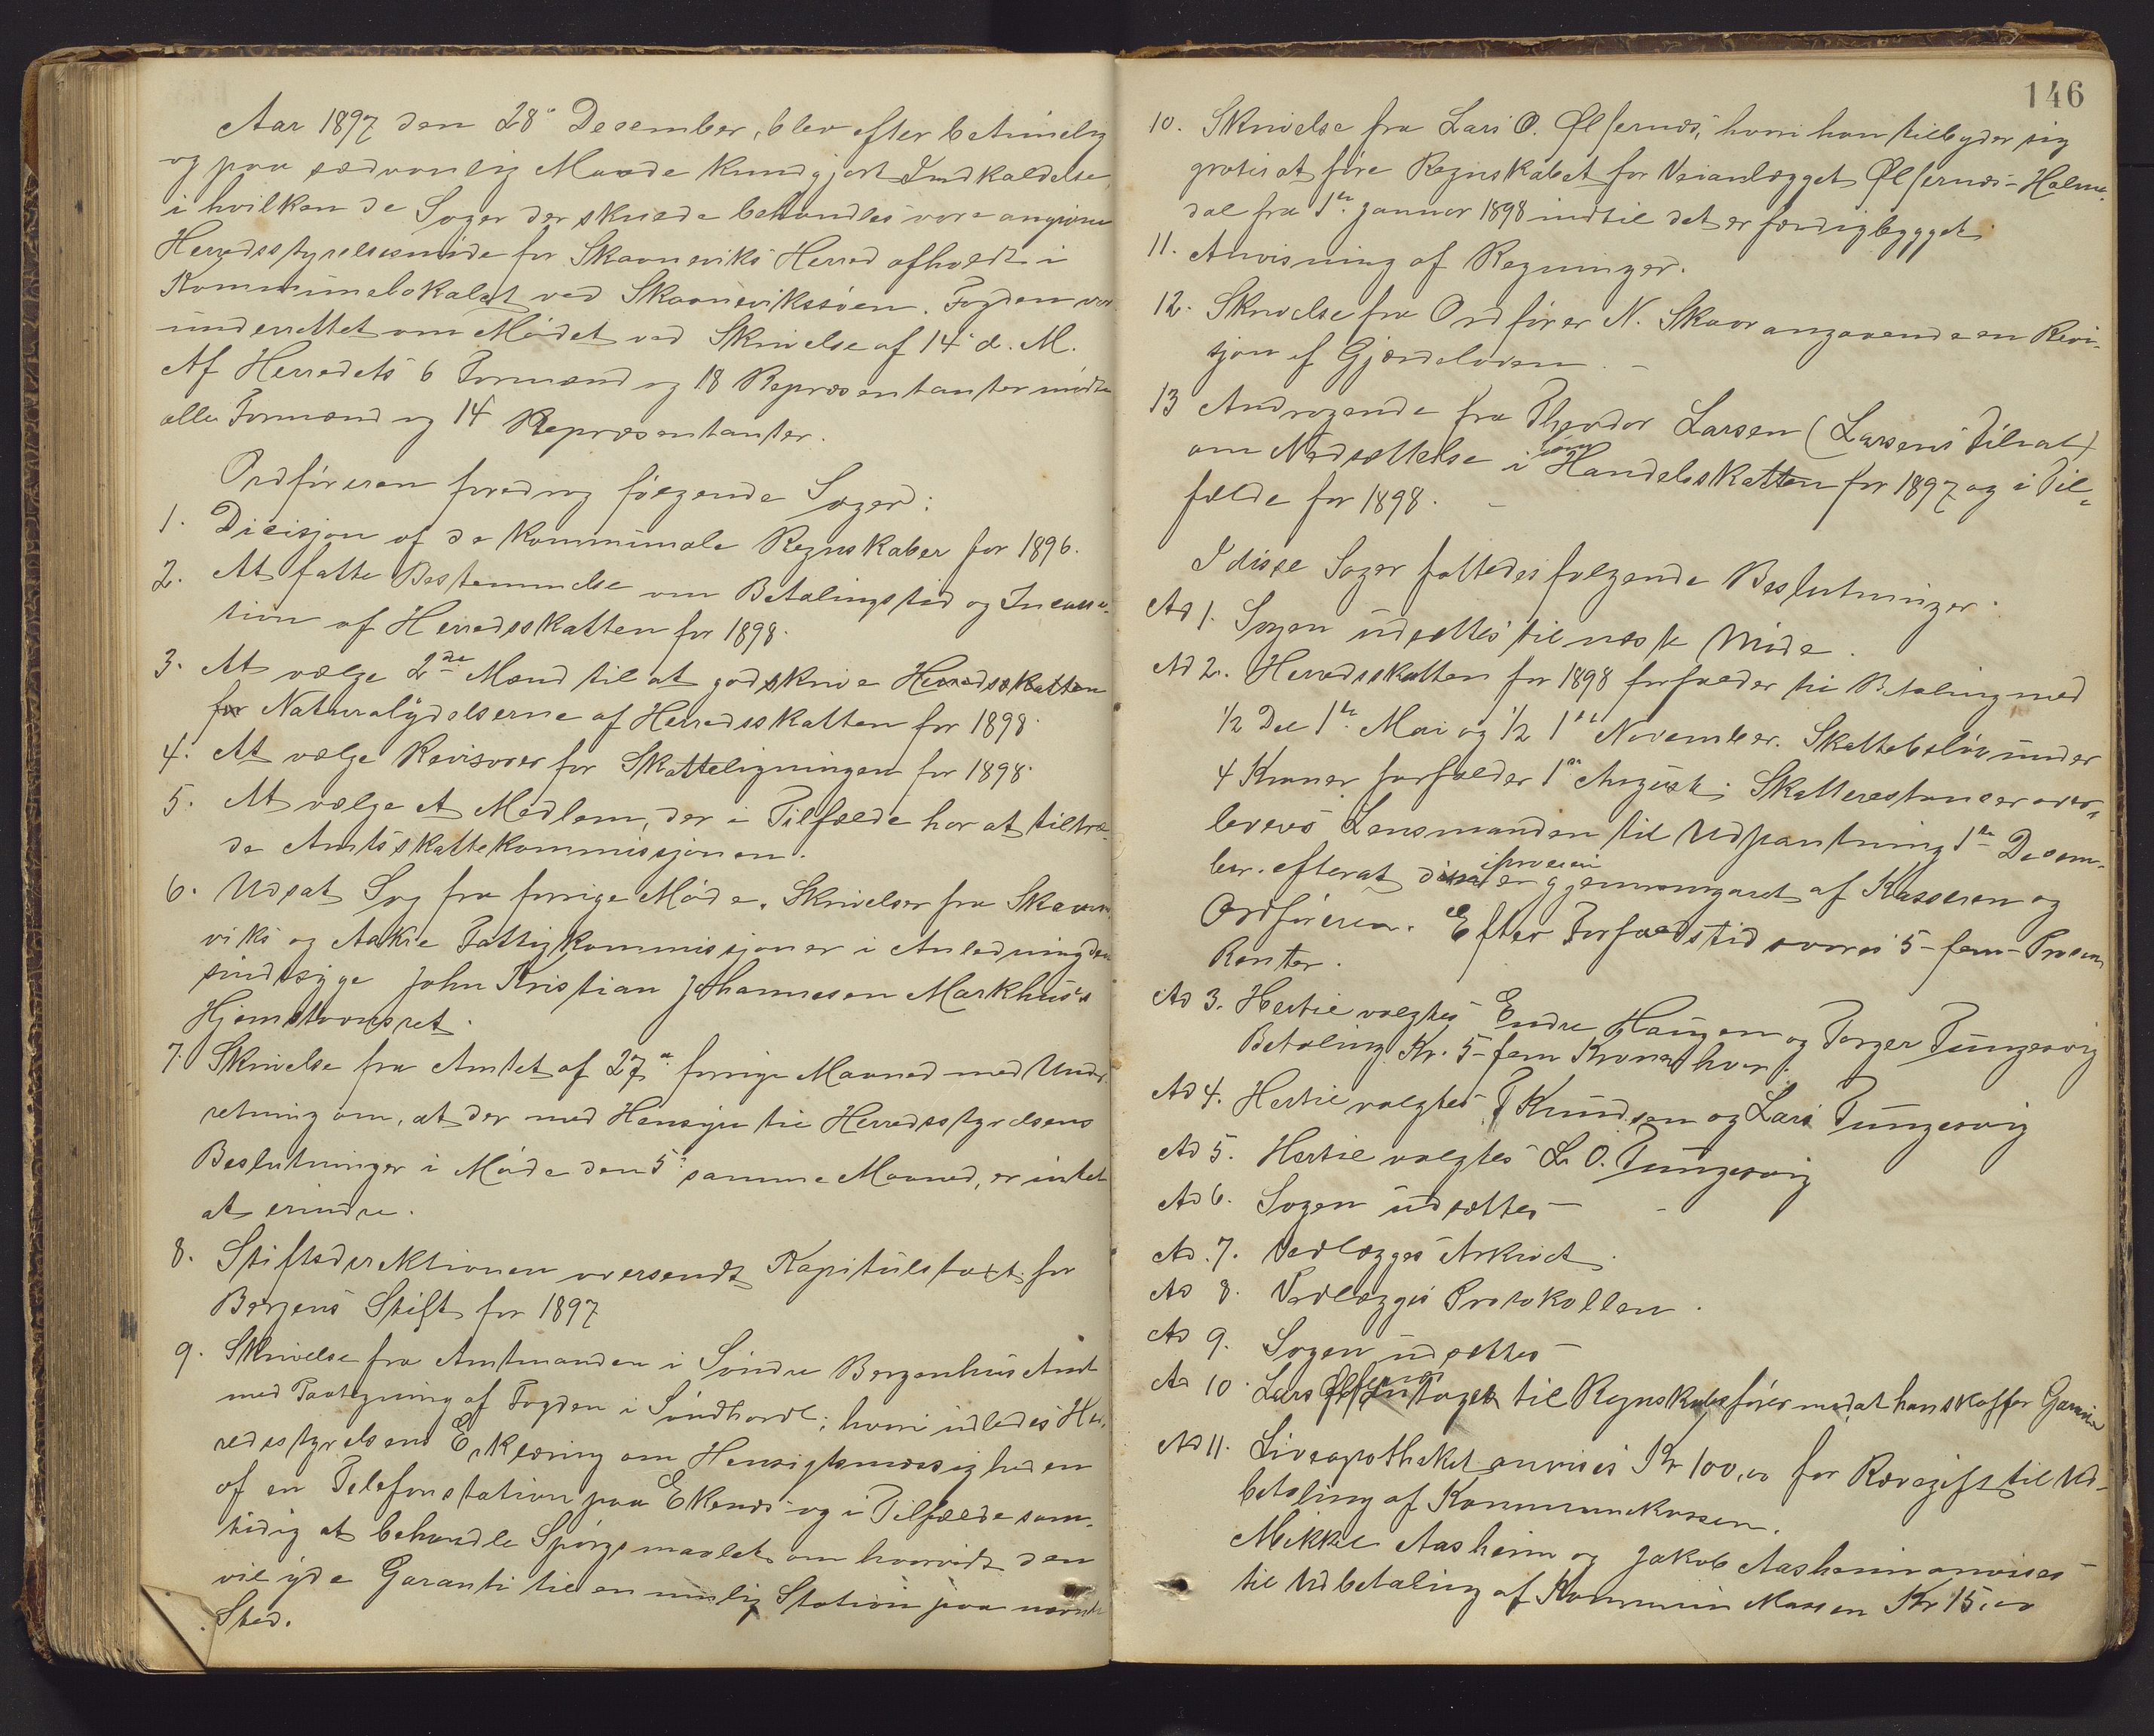 Aar 1897 den 28de Desember, blev efter betimelig
og paa sædvanlig Maade kundgjort Indkaldelse,
i hvilken de Sager der skulde behandles vare angivne
Herredsstyrelsesmöde for Skaaneviks Herred afholdt i
Kommunelokalet ved Skaanevikssöen. Fogden var
underrettet om Mödet ved Skrivelse af 14de d. M.
Af Herredets 6 Formænd og 18 Repræsentanter mödte
alle Formænd og 14 Repræsentanter.
Ordföreren foredrog fölgende Sager:
1. Dicisjon af de kommunale Regnskaber for 1896.
2. At fatte Bestemmelse om Betalingstid og Incassa-
tion af Herredsskatten for 1898.
3. At vælge 2de Mænd til at godskrive Herredsskatten
for Naturalydelserne af Herredsskatten for 1898.
4. At vælge Revisorer for Skatteligningen for 1898.
5. At vælge et Medlem, der i Tilfælde har at tiltræ-
de Amtsskattekommissjonen.
6. Udsat Sag fra forrige Möde. Skrivelser fra Skaane-
viks og Aakre Fattigkommissjoner i Anledning den
sindssyge John Kristian Johannesen Markhus's
Hjemstavnsret.
7. Skrivelse fra Amtet af 27de forrige Maaned med Under-
retning om, at der med Hensyn til Herredsstyrelsens
Beslutninger i Möde den 5te samme Maaned, er intet
at erindre.
8. Stiftsdirektionen oversendt Kapitulstaxt for
Bergens Stift for 1897
9. Skrivelse fra Amtmanden i Söndre Bergenhus Amt
med Paategning af Fogden i Söndhordl; hvori udledes Her-
redsstyrelsens Erklæring om Hensigtsmæssigheden
af en Telefonstation paa Ekenes og i Tilfælde sam-
tidig at behandle Spörgsmaalet om hvorvidt den
vil yde Garanti til en mulig Station paa nævnte
Sted.
146
10. Skrivelse fra Lars O. Ölfernæs, hvori han tilbyder sig
gratis at före Regnskabet for Veianlægget Ölfernæs-Holme-
dal fra 1ste Januar 1898 indtil det er færdigbygget.
11. Anvisning af Regninger.
12. Skrivelse fra Ordförer N. Skaar angaaende en Revi-
sjon af Gjærdeloven. -
13 Andragende fra Theodor Larsen (Larsens Tilsat)
om Nedsættelse i Handelsskatten for 1897 og i Til-
fælde for 1898. -
I disse Sager fattedes fölgende Beslutninger:
Ad 1. Sagen udsættes til næste Möde.
Ad 2. Herredsskatten for 1898 forfalder til Betaling med
1/2 Del 1ste Mai og 1/2 1ste November. Skattebelöb under
4 Kroner forfalder 1ste August; Skatterestanser over-
leveres Lensmanden til Udpantning 1ste Desem-
ber. efterat disse er gjennemgaaet af Kasseren og
Ordföreren. Efter Forfaldstid svares 5-fem- Prosent
Renter.
Ad 3. Hertil valgtes Endre Haugen og Torger Tungesvig
Betaling Kr. 5-fem Kroner hver.
Ad 4. Hertil valgtes T Knudsen og Lars Tungesvig
Ad 5. Hertil valgtes L O. Tungesvig
Ad 6. Sagen udsættes -
Ad. 7. Vedlægges Arkivet.
Ad 8. Vedlægges Protokollen.
Ad 9. Sagen udsættes -
Ad 10. Lars Ölfernæs toges til Regnskabsförer med at han skaffer Garanti
Ad 11. Löveapotheket anvises Kr 100,00 for Rævegift til Ud-
betaling af Kommunekassen.
Mikkel Aasheim og Jakob Aasheim anvises
til Udbetaling af Kommunekassen Kr 15,00